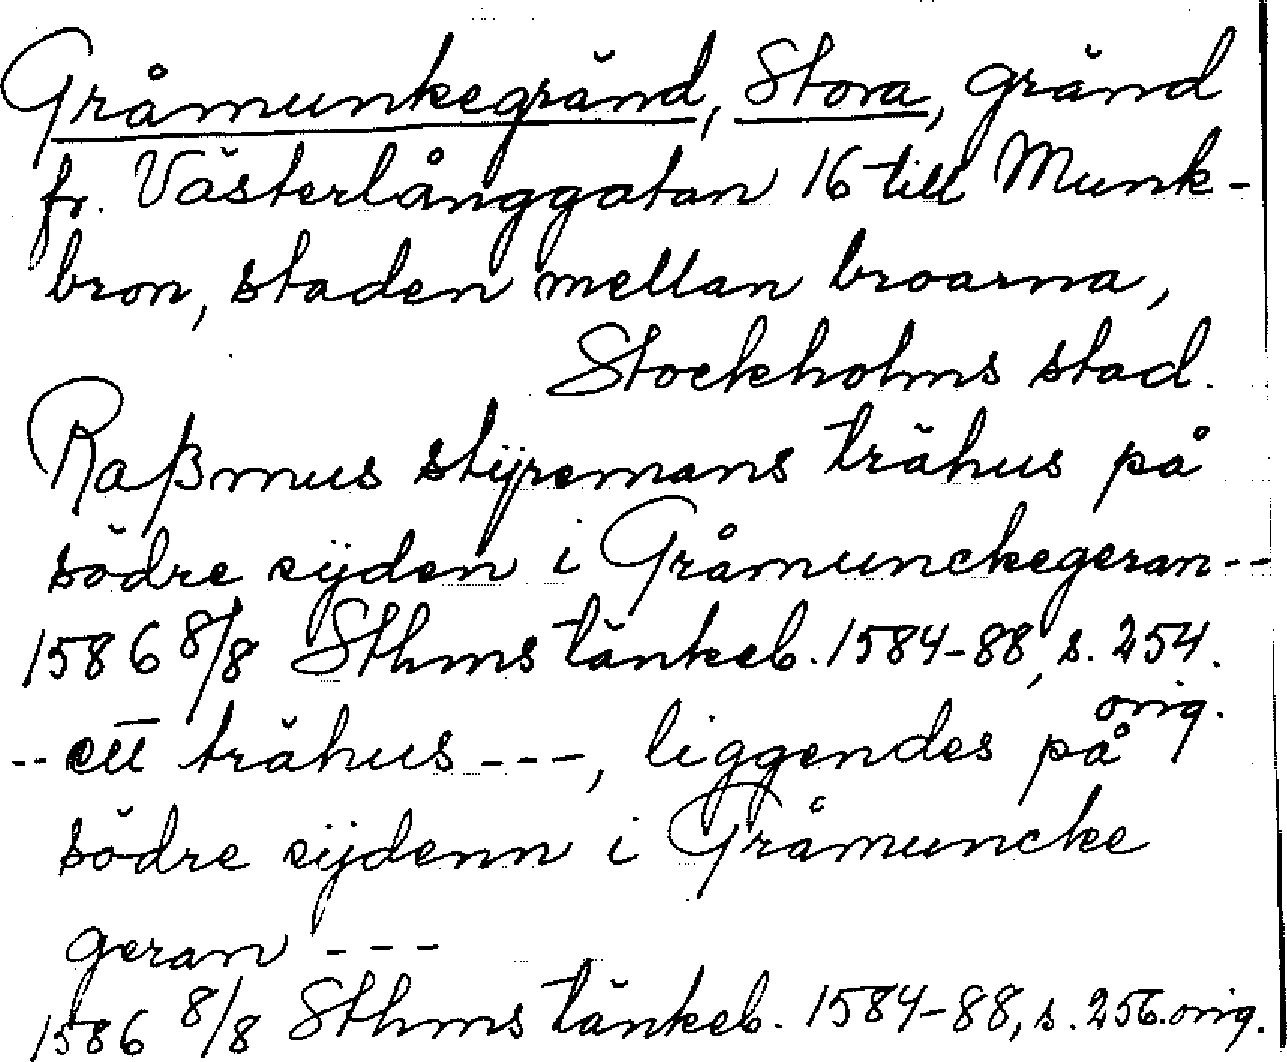 Gråmunkegränd, Stora, gränd
fr. Västerlånggatan 16 till Munk-
bron, staden mellan broarna,
Stockholms stad.
Raßmus stÿremans trähus på
södre sÿden i Gråmunckegeran--
1586 8/8 Sthms tänkeb. 1584-88, s. 254.
orig.
-- ett trähus ---, liggendes på
södre sÿdenn i Gråmuncke
geran ---
1586 8/8 Sthms tänkeb. 1584-88, s. 256. orig.